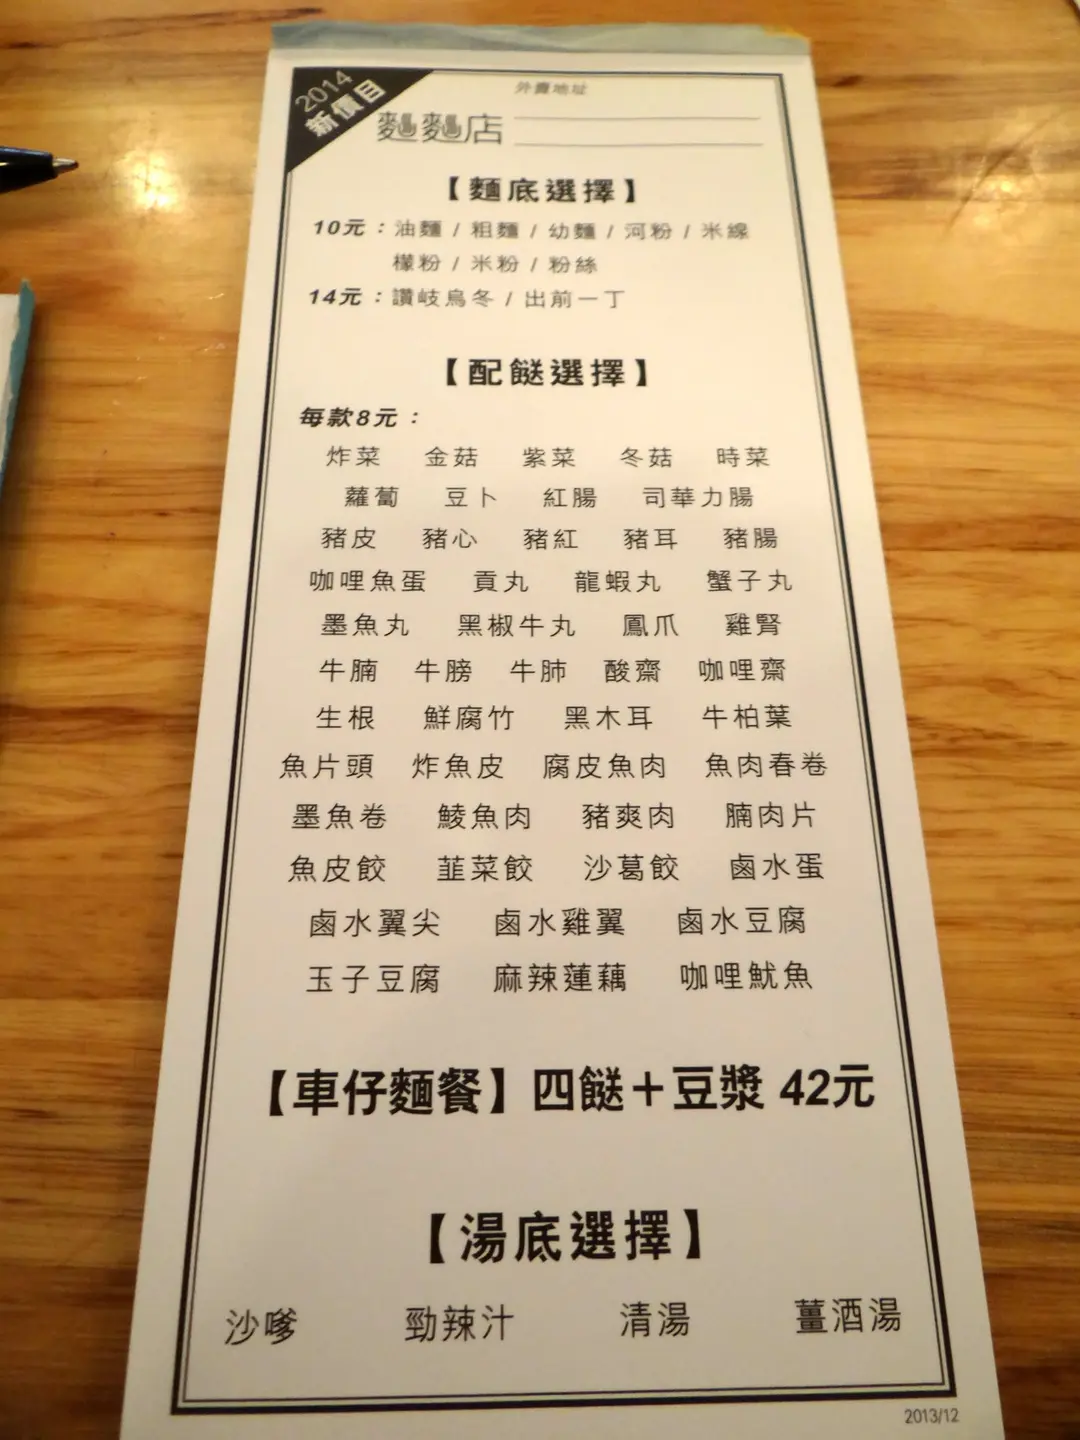 2014
新價目
外賣地址
麵麵店
【麵底選擇】
10元：油麵 / 粗麵 / 幼麵 / 河粉 / 米線
檬粉 / 米粉 / 粉絲
14元：讚岐烏冬 / 出前一丁
【配餸選擇】
每款8元：
炸菜 金菇 紫菜 冬菇 時菜
蘿蔔 豆卜 紅腸 司華力腸
豬皮 豬心 豬紅 豬耳 豬腸
咖哩魚蛋 貢丸 龍蝦丸 蟹子丸
墨魚丸 黑椒牛丸 鳳爪 雞腎
牛腩 牛膀 牛肺 酸齋 咖哩齋
生根 鮮腐竹 黑木耳 牛柏葉
魚片頭 炸魚皮 腐皮魚肉 魚肉春卷
墨魚卷 鯪魚肉 豬爽肉 腩肉片
魚皮餃 韮菜餃 沙葛餃 鹵水蛋
鹵水翼尖 鹵水雞翼 鹵水豆腐
玉子豆腐 麻辣蓮藕 咖哩魷魚
【車仔麵餐】四餸＋豆漿 42元
【湯底選擇】
沙嗲 勁辣汁 清湯 薑酒湯
2013/12